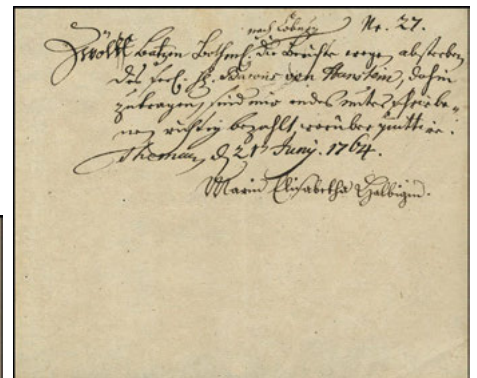 nach Coburg No. 27.
Zwölff Batzen Bothenl. die Berichte wegen absterben
des seel. H. Barons von Hanstein, dahin
zutragen, sind mir endes unterschriebe-
nen richtig bezahlt, worüber quittire.
Themar, d. 21t Junÿ. 1764.
Maria Elisabetha Halbigin.